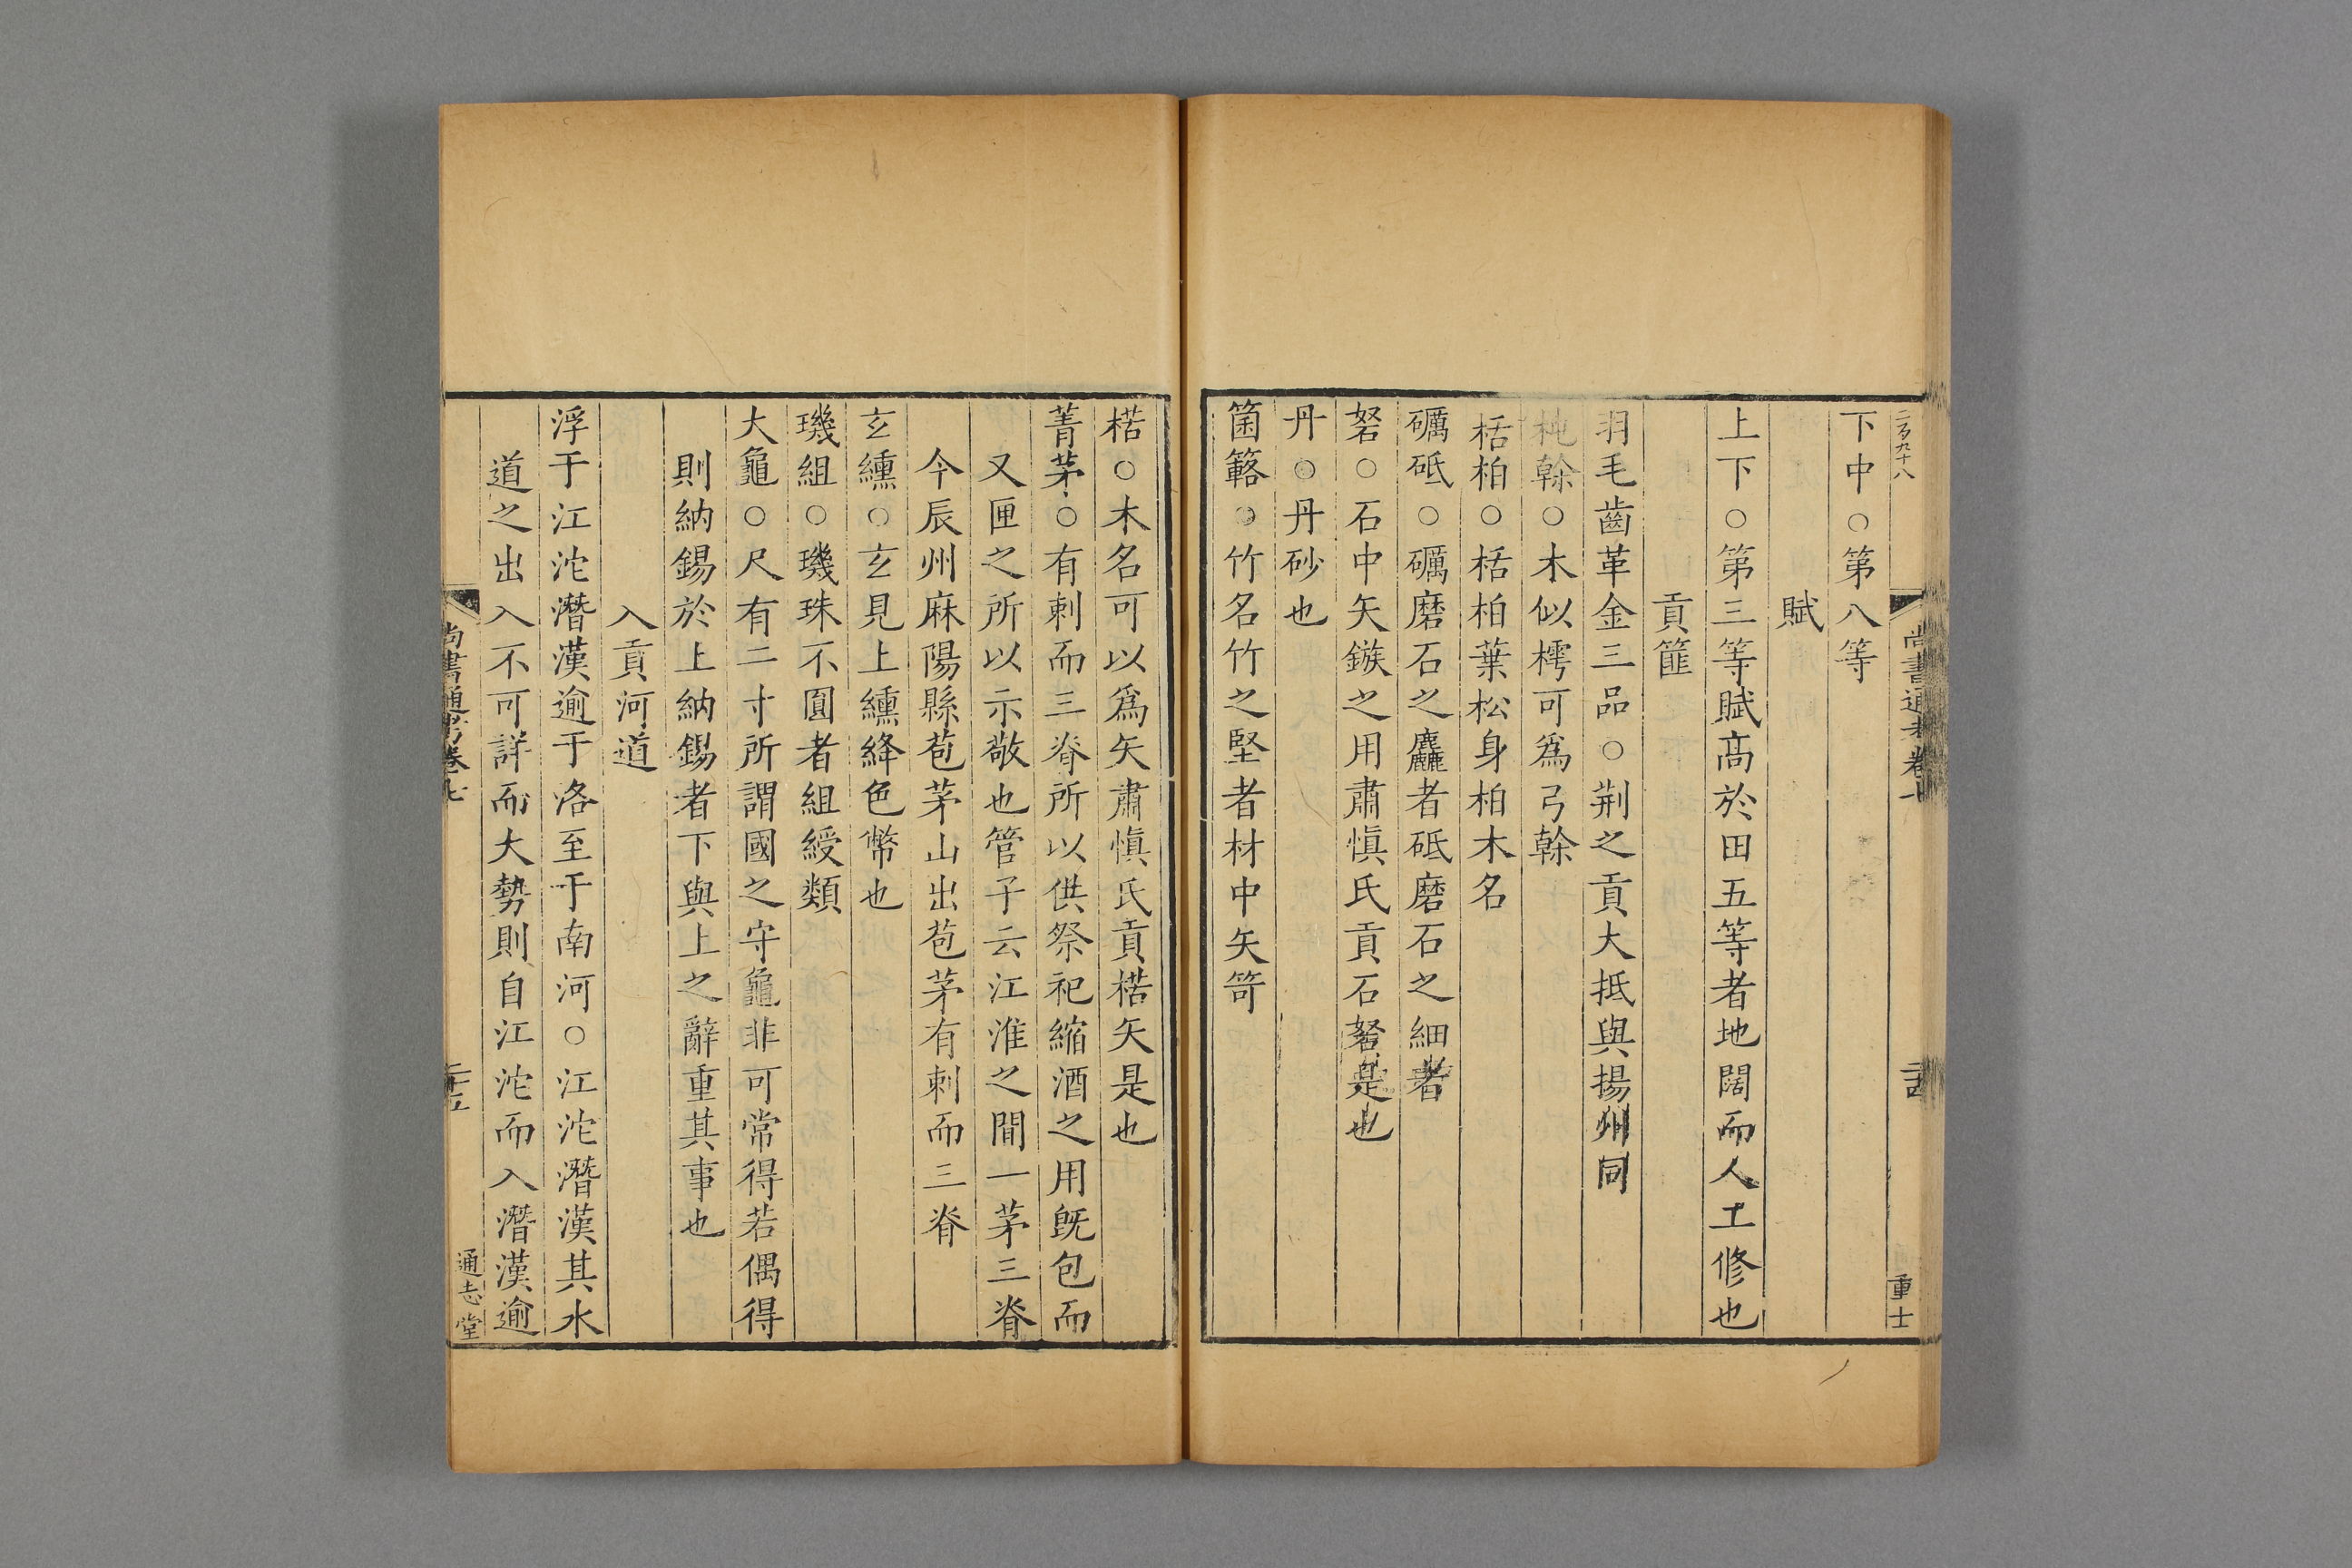 二百九十八
尚書通考卷七
二十四
重士
下中○第八等
賦
上下○第三等賦髙於田五等者地闊而人工修也
貢篚
羽毛齒革金三品○荆之貢大抵與揚州同
杶榦○木似樗可爲弓榦
栝柏○栝柏葉松身柏木名
礪砥○礪磨石之麤者砥磨石之細者
砮○石中矢鏃之用肅愼氏貢石砮是也
丹○丹砂也
箘簵○竹名竹之堅者材中矢笴
楛○木名可以爲矢肅愼氏貢楛矢是也
菁茅○有刺而三脊所以供祭祀縮酒之用旣包而
又匣之所以示敬也管子云江淮之間一茅三脊
今辰州麻陽縣苞茅山出苞茅有刺而三脊
玄纁○玄見上纁絳色幣也
璣組○璣珠不圓者組綬類
大龜○尺有二寸所謂國之守龜非可常得若偶得
則納錫於上納錫者下與上之辭重其事也
入貢河道
浮于江沱潛漢逾于洛至于南河○江沱潛漢其水
道之出入不可詳而大勢則自江沱而入潛漢逾
尚書通考卷七
二十五
通志堂